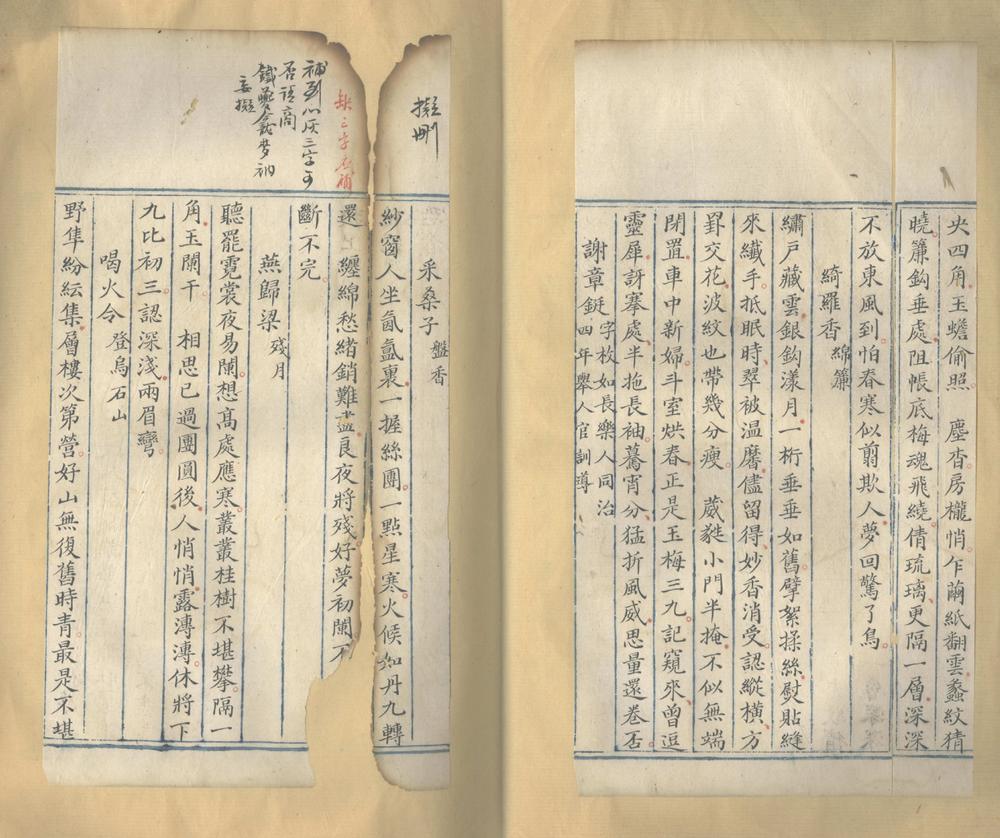 央四角玉蟾偷照　塵香房櫳悄乍繭紙翻雲蠡紋猜
曉簾鈎垂處阻帳底梅魂飛繞倩琉璃更隔一層深深
不放東風到怕春寒似翦欺人夢回驚了鳥
綺羅香 綿簾
繡戶藏雲銀鈎漾月一桁垂垂如舊擘絮揉絲熨貼縫
來纖手抵眠時翠被温黁儘留得妙香消受認縱橫方
罫交花波紋也帶幾分瘦　葳蕤小門半掩不似無端
閉置車中新婦斗室烘春正是玉梅三九記窺來曾逗
靈犀訝搴處半拖長袖驀宵分猛折風威思量還卷否
謝章鋌 字枚如長樂人同治
四年舉人官訓導
擬刪
采桑子 盤香
紗窗人坐氤氳裏一握絲團一點星寒火候如丹九轉
還　纏綿愁緒銷難盡良夜將殘好夢初闌不
斷不完
缺三字應補
補到心灰三字可
否請商
鐵夢龕
妄擬
燕歸梁 殘月
聽罷霓裳夜易闌想高處應寒叢叢桂樹不堪攀隔一
角玉闌干　相思已過團圓後人悄悄露漙漙休將下
九比初三認深淺兩眉彎
喝火令 登烏石山
野隼紛紜集層樓次第營好山無復舊時青最是不堪